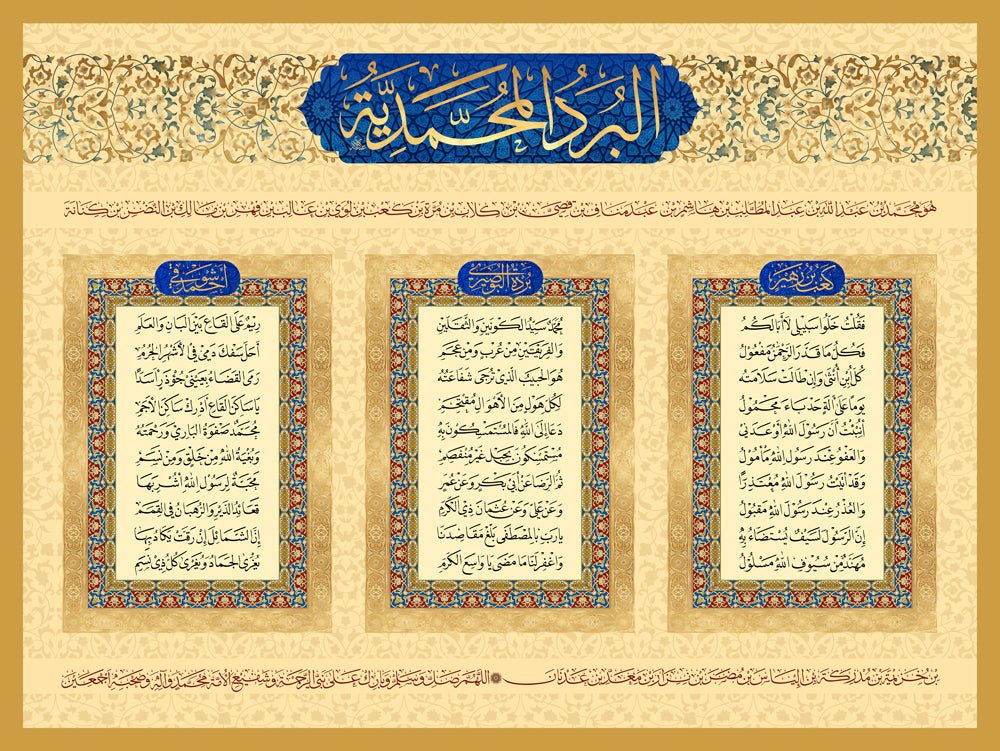 البُرْدُ المُحَمَّدِيَّة
هو محمد بن عبد الله بن عبد المطلب بن هاشم بن عبد مناف بن قصي بن كلاب بن مرة بن كعب بن لؤي بن غالب بن فهر بن مالك بن النضر بن كنانة
كعب بن زهير
فَقُلْتُ خَلُّوا سَبِيلِي لَا أَبَا لَكُمُ
فَكُلُّ مَا قَدَّرَ الرَّحْمٰنُ مَفْعُولُ
كُلُّ ابْنِ أُنْثَى وَإِنْ طَالَتْ سَلَامَتُهُ
يَوْمًا عَلَى آلَةٍ حَدْبَاءَ مَحْمُولُ
أُنْبِئْتُ أَنَّ رَسُولَ اللهِ أَوْعَدَنِي
وَالْعَفْوُ عِنْدَ رَسُولِ اللهِ مَأْمُولُ
وَقَدْ أَتَيْتُ رَسُولَ اللهِ مُعْتَذِرًا
وَالْعُذْرُ عِنْدَ رَسُولِ اللهِ مَقْبُولُ
إِنَّ الرَّسُولَ لَسَيْفٌ يُسْتَضَاءُ بِهِ
مُهَنَّدٌ مِنْ سُيُوفِ اللهِ مَسْلُولُ
بردة البوصيري
مُحَمَّدٌ سَيِّدُ الْكَوْنَيْنِ وَالثَّقَلَيْنِ
وَالْفَرِيقَيْنِ مِنْ عُرْبٍ وَمِنْ عَجَمِ
هُوَ الْحَبِيبُ الَّذِي تُرْجَى شَفَاعَتُهُ
لِكُلِّ هَوْلٍ مِنَ الْأَهْوَالِ مُقْتَحَمِ
دَعَا إِلَى اللهِ فَالْمُسْتَمْسِكُونَ بِهِ
مُسْتَمْسِكُونَ بِحَبْلٍ غَيْرِ مُنْفَصِمِ
ثُمَّ الرِّضَا عَنْ أَبِي بَكْرٍ وَعَنْ عُمَرَ
وَعَنْ عَلِيٍّ وَعَنْ عُثْمَانَ ذِي الْكَرَمِ
يَا رَبِّ بِالْمُصْطَفَى بَلِّغْ مَقَاصِدَنَا
وَاغْفِرْ لَنَا مَا مَضَى يَا وَاسِعَ الْكَرَمِ
أحمد شوقي
رِيمٌ عَلَى الْقَاعِ بَيْنَ الْبَانِ وَالْعَلَمِ
أَحَلَّ سَفْكَ دَمِي فِي الْأَشْهُرِ الْحُرُمِ
رَمَى الْقَضَاءُ بِعَيْنَيْ جُؤْذَرٍ أَسَدًا
يَا سَاكِنَ الْقَاعِ أَدْرِكْ سَاكِنَ الْأَجَمِ
مُحَمَّدٌ صَفْوَةُ الْبَارِي وَرَحْمَتُهُ
وَبُغْيَةُ اللهِ مِنْ خَلْقٍ وَمِنْ نَسَمِ
مَحَبَّةٌ لِرَسُولِ اللهِ أُشْرِبَهَا
قَعَائِدُ الدَّيْرِ وَالرُّهْبَانُ فِي الْقِمَمِ
إِنَّ الشَّمَائِلَ إِنْ رَقَّتْ يَكَادُ بِهَا
يُغْرَى الْجَمَادُ وَيُغْرَى كُلُّ ذِي نَسَمِ
بن خزيمة بن مدركة بن إلياس بن مضر بن نزار بن معد بن عدنان اللهم صل وسلم وبارك على نبي الرحمة وشفيع الأمة محمد وآله وصحبه أجمعين